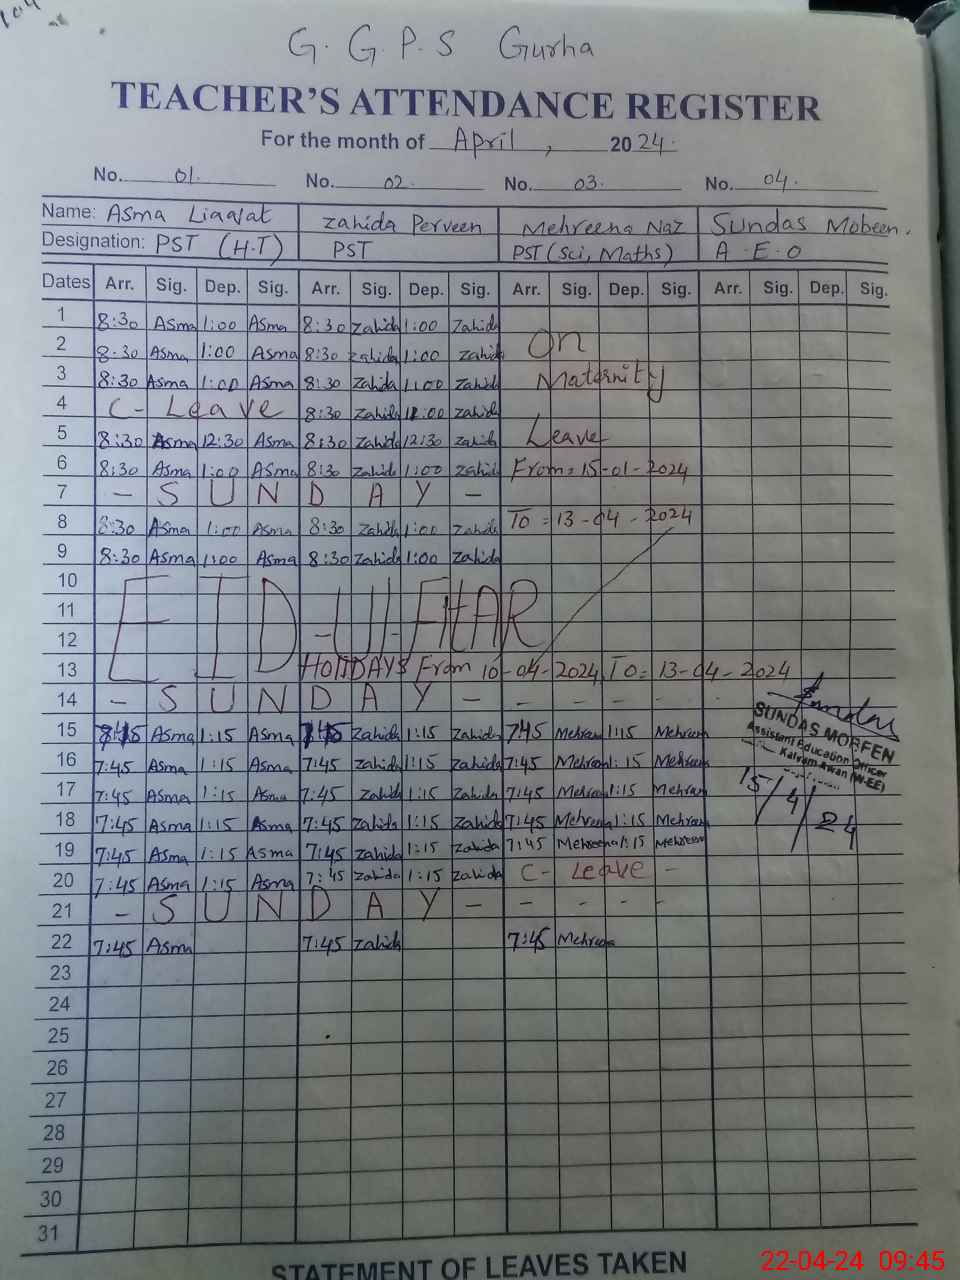 G. G. P. S Gurha
TEACHER'S ATTENDANCE REGISTER
For the month of April, 2024.
No. 01. No. 02. No. 03. No. 04.
Name: Asma Liaqat Zahida Perveen Mehreena Naz Sundas Mobeen.
Designation: PST (H.T) PST PST (Sci, Maths) A.E.O
Dates Arr. Sig. Dep. Sig. Arr. Sig. Dep. Sig. Arr. Sig. Dep. Sig. Arr. Sig. Dep. Sig.
1 8:30 Asma 1:00 Asma 8:30 Zahida 1:00 Zahida
2 8:30 Asma 1:00 Asma 8:30 Zahida 1:00 Zahida On
3 8:30 Asma 1:00 Asma 8:30 Zahida 1:00 Zahida Maternity
4 C- Leave 8:30 Zahida :00 Zahida
5 8:30 Asma 12:30 Asma 8:30 Zahida 12:30 Zahida Leave
6 8:30 Asma 1:00 Asma 8:30 Zahida 1:00 Zahida From = 15-01-2024
7 - S U N D A Y -
8 8:30 Asma 1:00 Asma 8:30 Zahida 1:00 Zahida To = 13-04-2024
9 8:30 Asma 1:00 Asma 8:30 Zahida 1:00 Zahida
10
11 EID-UL-FITAR
12
13 HOLIDAYS From 10-04-2024 To = 13-04-2024
14 - S U N D A Y - - - - -
15 Asma 1:15 Asma Zahida 1:15 Zahida 7:45 Mehreen 1:15 Mehreen
SUNDAS MOBEEN
Assistant Education Officer
Kalyam Awan (W-EE)
15/4/24
16 7:45 Asma 1:15 Asma 7:45 Zahida 1:15 Zahida 7:45 Mehreen 1:15 Mehreen
17 7:45 Asma 1:15 Asma 7:45 Zahida 1:15 Zahida 7:45 Mehreen 1:15 Mehreen
18 7:45 Asma 1:15 Asma 7:45 Zahida 1:15 Zahida 7:45 Mehreena 1:15 Mehreen
19 7:45 Asma 1:15 Asma 7:45 Zahida 1:15 Zahida 7:45 Mehreena 1:15 Mehreen
20 7:45 Asma 1:15 Asma 7:45 Zahida 1:15 Zahida C- Leave -
21 - S U N D A Y - - - - -
22 7:45 Asma 7:45 Zahida 7:45 Mehreena
23
24
25
26
27
28
29
30
31
STATEMENT OF LEAVES TAKEN
22-04-24 09:45